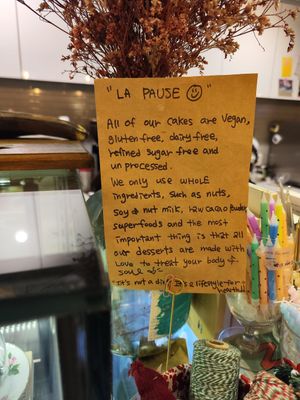 "LA PAUSE ☺"
All of our cakes are vegan,
gluten free, dairy free,
refined sugar free and
un processed.
We only use WHOLE
ingredients, such as nuts,
soy & nut milk, raw cacao powder
superfoods and the most
important thing is that all
our desserts are made with
Love to treat your body &
soul
It's not a diet It's a lifestyle for
health